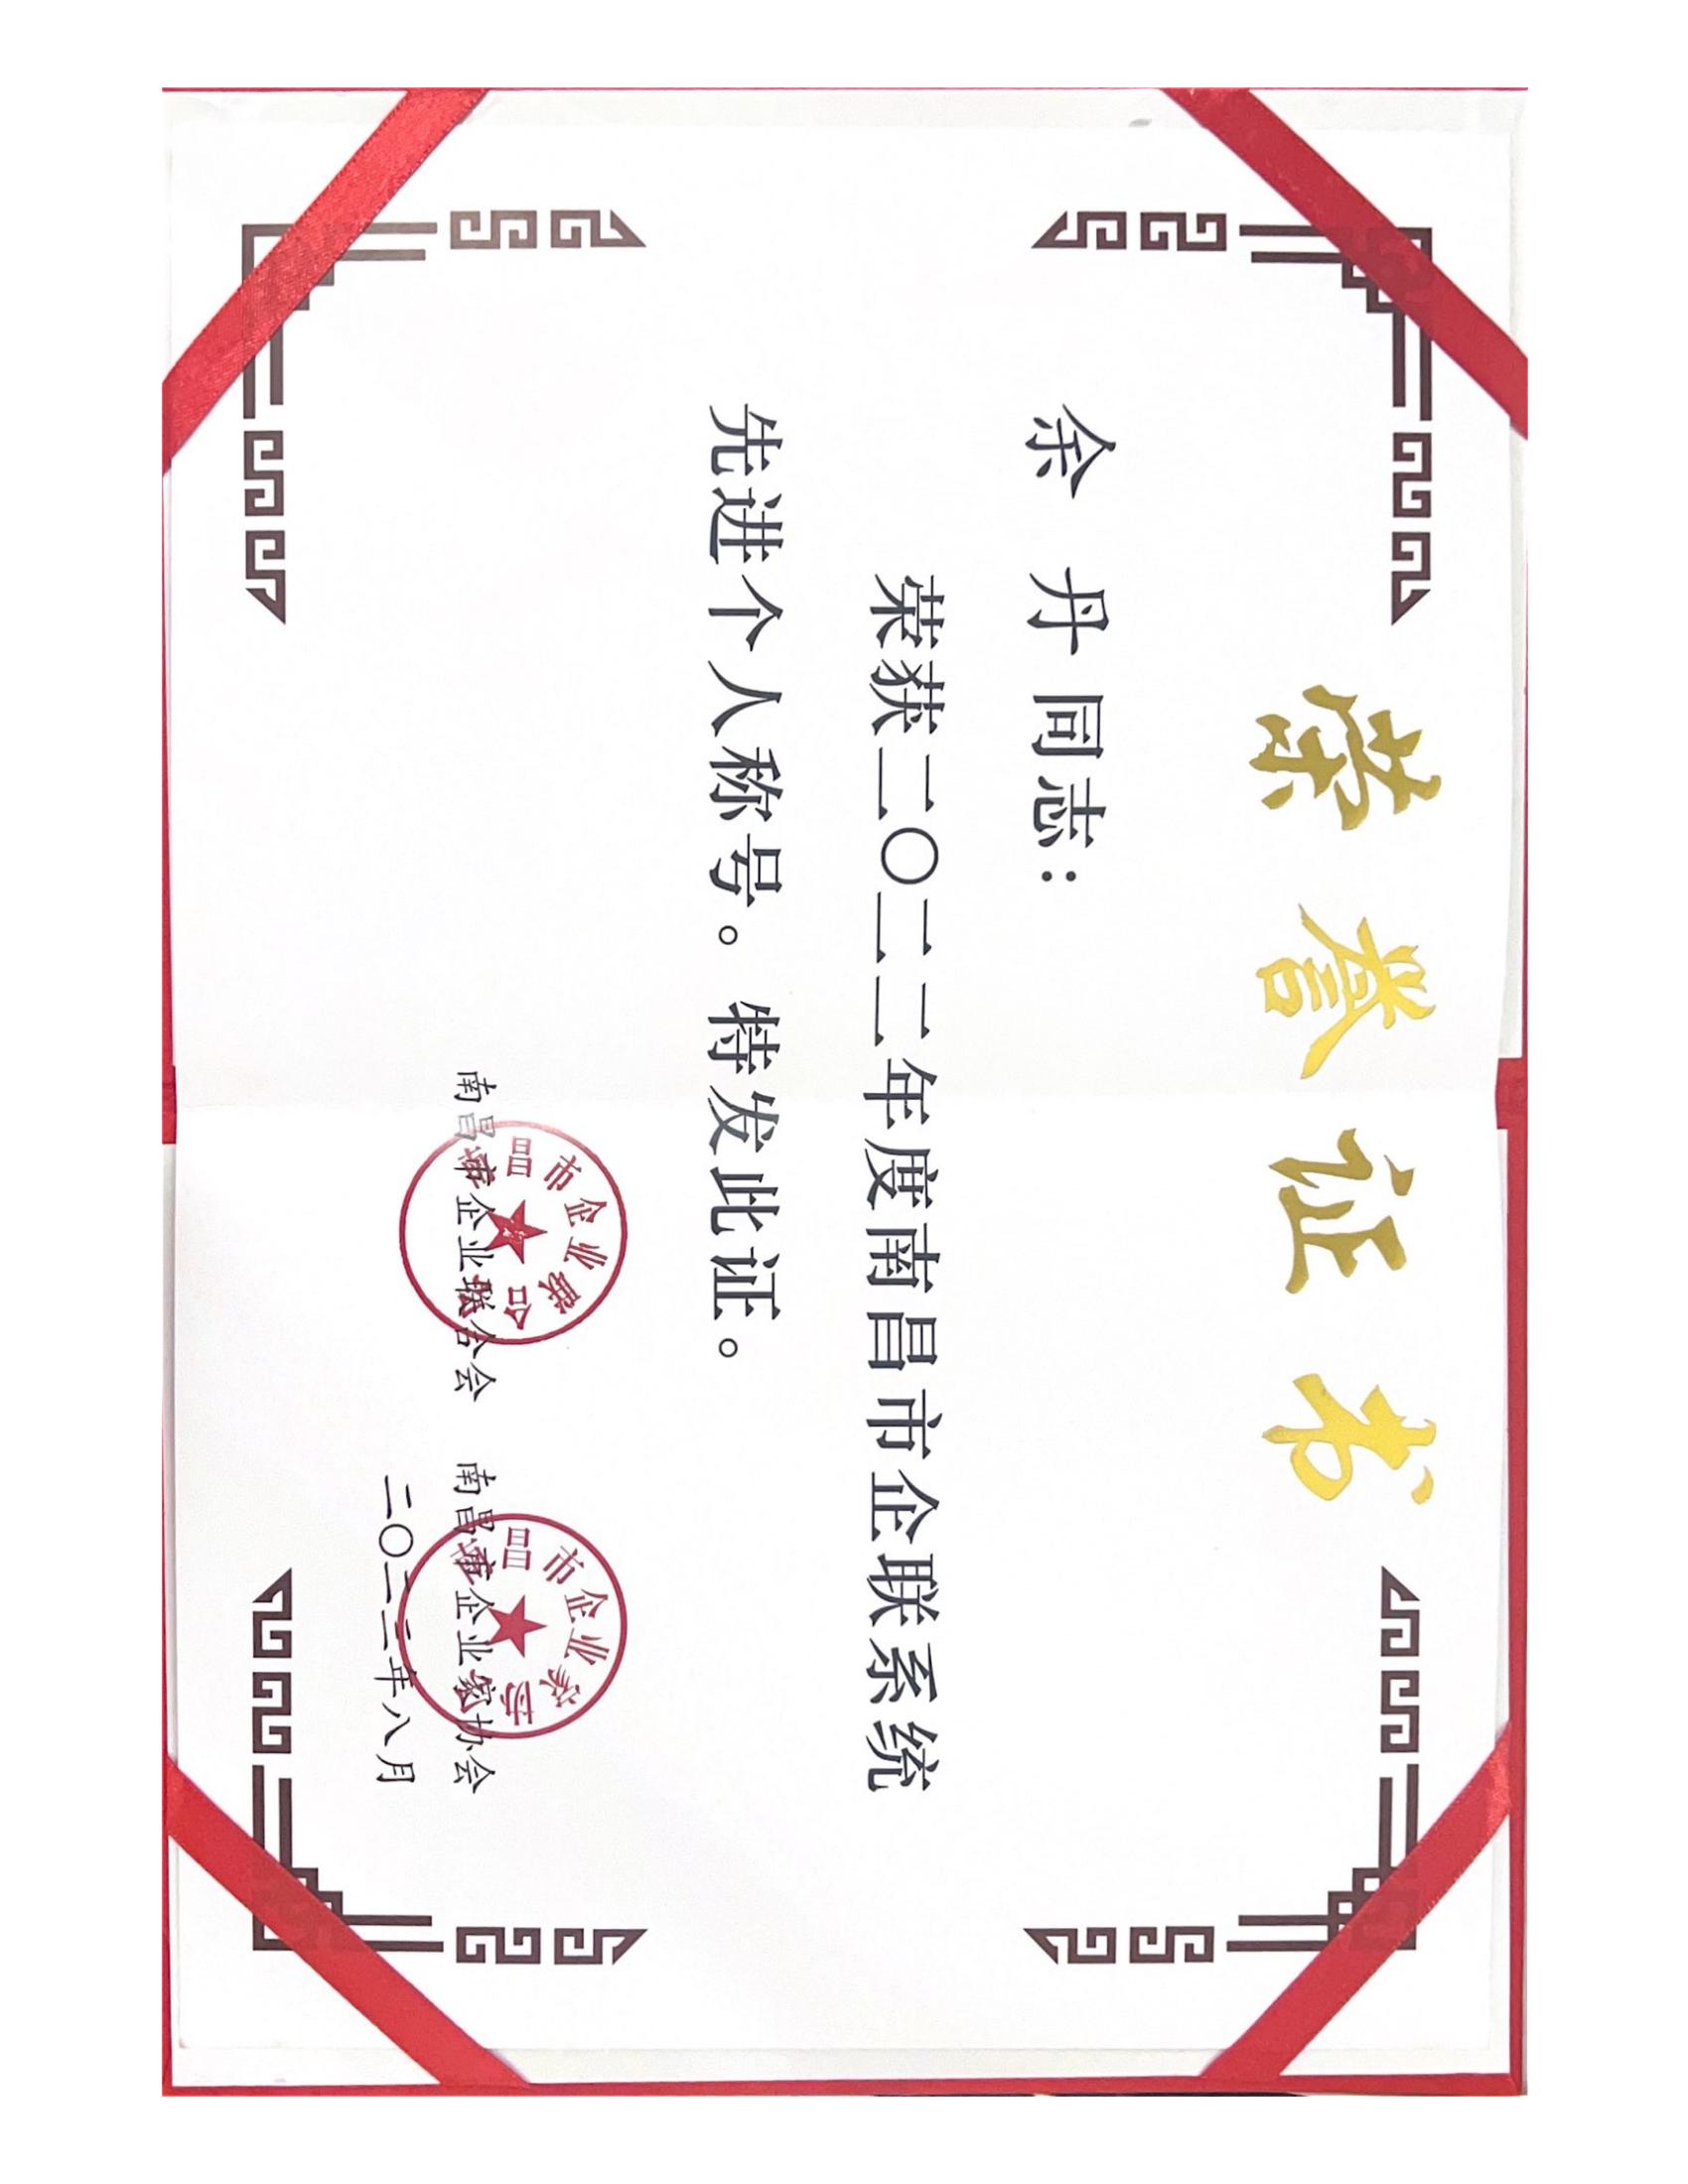 荣誉证书
余丹同志：
荣获二〇二二年度南昌市企联系统
先进个人称号。特发此证。
南昌市企业联合会 南昌市企业家协会
二〇二三年八月
南昌市企业联合会
南昌市企业家协会